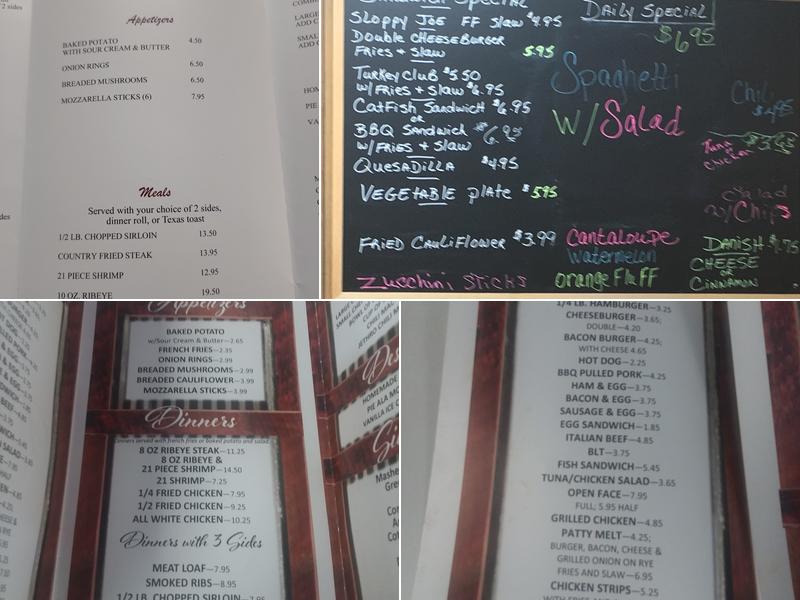 2 sides
Appetizers
BAKED POTATO 4.50
WITH SOUR CREAM & BUTTER
ONION RINGS 6.50
BREADED MUSHROOMS 6.50
MOZZARELLA STICKS (6) 7.95
Meals
Served with your choice of 2 sides,
dinner roll, or Texas toast
1/2 LB. CHOPPED SIRLOIN 13.50
COUNTRY FRIED STEAK 13.95
21 PIECE SHRIMP 12.95
10 OZ. RIBEYE 19.50
Special
Sloppy Joe FF Slaw $4.95
Double Cheeseburger
Fries + Slaw 5.95
Turkey Club $5.50
w/Fries + Slaw $6.95
Catfish Sandwich $6.95
or
BBQ Sandwich $6.95
w/Fries + Slaw
Quesadilla $4.95
Vegetable Plate $5.95
Fried Cauliflower $3.99
Zucchini Sticks
Daily Special
$6.95
Spaghetti
w/Salad
Cantaloupe
Watermelon
Orange Fluff
Chili
Tuna
or
Chicken
Salad
w/Chips
Danish
Cheese
or
Cinnamon
Appetizers
BAKED POTATO
w/Sour Cream & Butter—2.65
FRENCH FRIES—2.35
ONION RINGS—2.99
BREADED MUSHROOMS—2.99
BREADED CAULIFLOWER—3.99
MOZZARELLA STICKS—3.99
Dinners
Dinners served with french fries or baked potato and salad
8 OZ RIBEYE STEAK—11.25
8 OZ RIBEYE &
21 PIECE SHRIMP—14.50
21 SHRIMP—7.25
1/4 FRIED CHICKEN—7.95
1/2 FRIED CHICKEN—9.25
ALL WHITE CHICKEN—10.25
Dinners with 3 Sides
MEAT LOAF—7.95
SMOKED RIBS—8.95
1/2 LB. CHOPPED SIRLOIN—7.95
HOMEMADE
PIE ALA MO
VANILLA ICE C
1/4 LB. HAMBURGER—3.25
CHEESEBURGER—3.65;
DOUBLE—4.20
BACON BURGER—4.25;
WITH CHEESE 4.65
HOT DOG—2.25
BBQ PULLED PORK—4.25
HAM & EGG—3.75
BACON & EGG—3.75
SAUSAGE & EGG—3.75
EGG SANDWICH—1.85
ITALIAN BEEF—4.85
BLT—3.75
FISH SANDWICH—5.45
TUNA/CHICKEN SALAD—3.65
OPEN FACE—7.95
FULL; 5.95 HALF
GRILLED CHICKEN—4.85
PATTY MELT—4.25;
BURGER, BACON, CHEESE &
GRILLED ONION ON RYE
FRIES AND SLAW—6.95
CHICKEN STRIPS—5.25